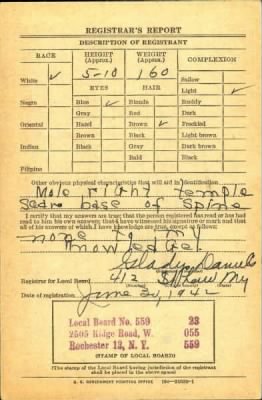 REGISTRAR'S REPORT
DESCRIPTION OF REGISTRANT
RACE HEIGHT (Approx.) WEIGHT (Approx.) COMPLEXION
5-10 160
White ✓
EYES HAIR
Sallow
Light ✓
Negro Blue ✓ Blonde Ruddy
Gray Red Dark
Oriental Hazel Brown ✓ Freckled
Brown Black Light brown
Indian Black Gray Dark brown
Bald Black
Filipino
Other obvious physical characteristics that will aid in identification
Mole right temple
Scar base of Spine
I certify that my answers are true; that the person registered has read or has had read to him his own answers; that I have witnessed his signature or mark and that all of his answers of which I have knowledge are true, except as follows:
none to my
knowledge
Gladys Daniels
Registrar for Local Board 412
Date of registration June 30, 1942
Local Board No. 559 23
2505 Ridge Road, W. 055
Rochester 13, N. Y. 559
(STAMP OF LOCAL BOARD)
(The stamp of the Local Board having jurisdiction of the registrant shall be placed in the above space)
U. S. GOVERNMENT PRINTING OFFICE